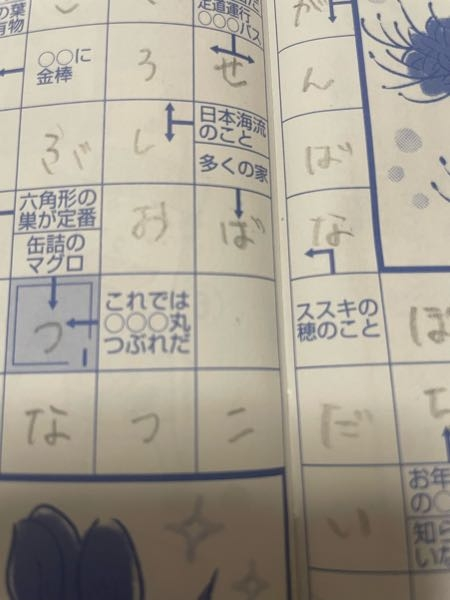 の葉
有物
足道運行
○○○バス
が
○○に
金棒
ろ
せ
ん
ぶ
し
日本海流
のこと
多くの家
ば
六角形の
巣が定番
缶詰の
マグロ
お
ば
な
つ
これでは
○○○丸
つぶれだ
ススキの
穂のこと
ぼ
な
つ
こ
だ
ち
い
お年
の○
知ら
いな